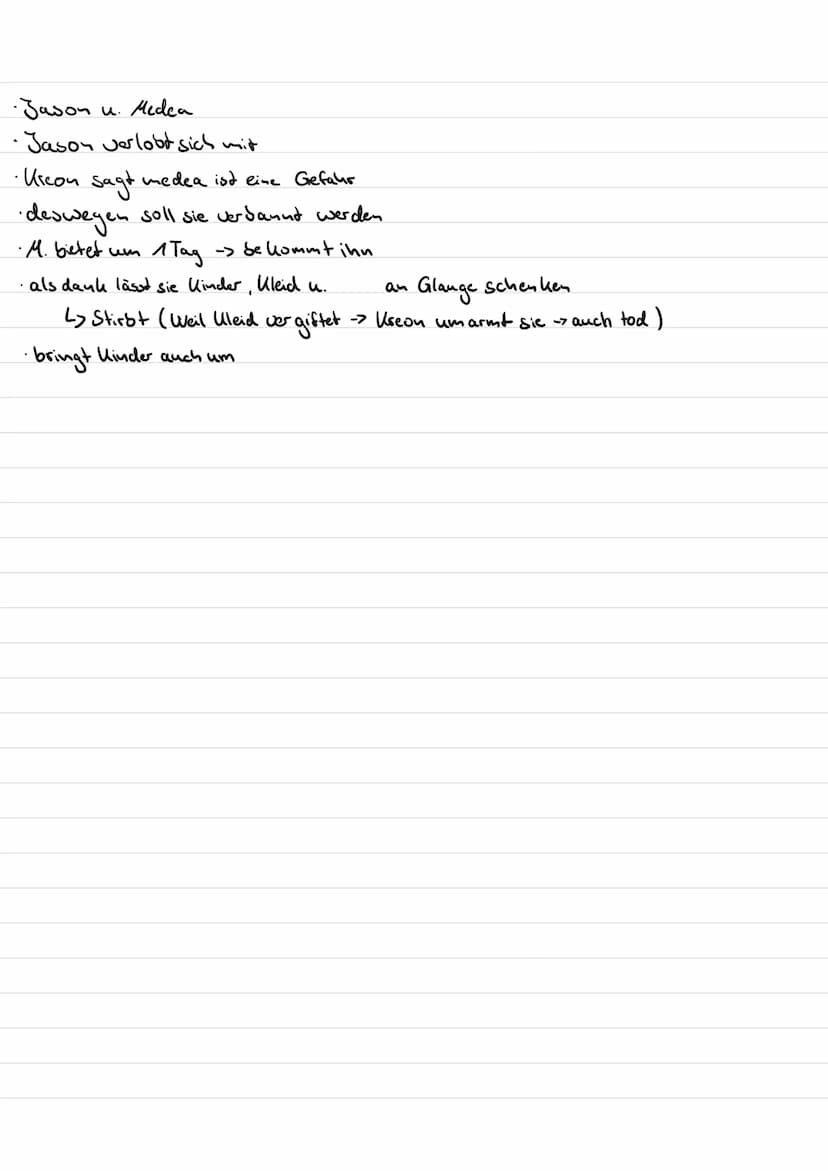 · Jason u. Medea
· Jason verlobt sich mit
· Kreon sagt medea ist eine Gefahr
· deswegen soll sie verbannt werden
· M. bietet um 1 Tag -> bekommt ihn
· als dank lässt sie Kinder, Kleid u. an Glange schenken
↳ Stirbt (Weil Kleid vergiftet -> Kreon umarmt sie -> auch tod)
· bringt Kinder auch um